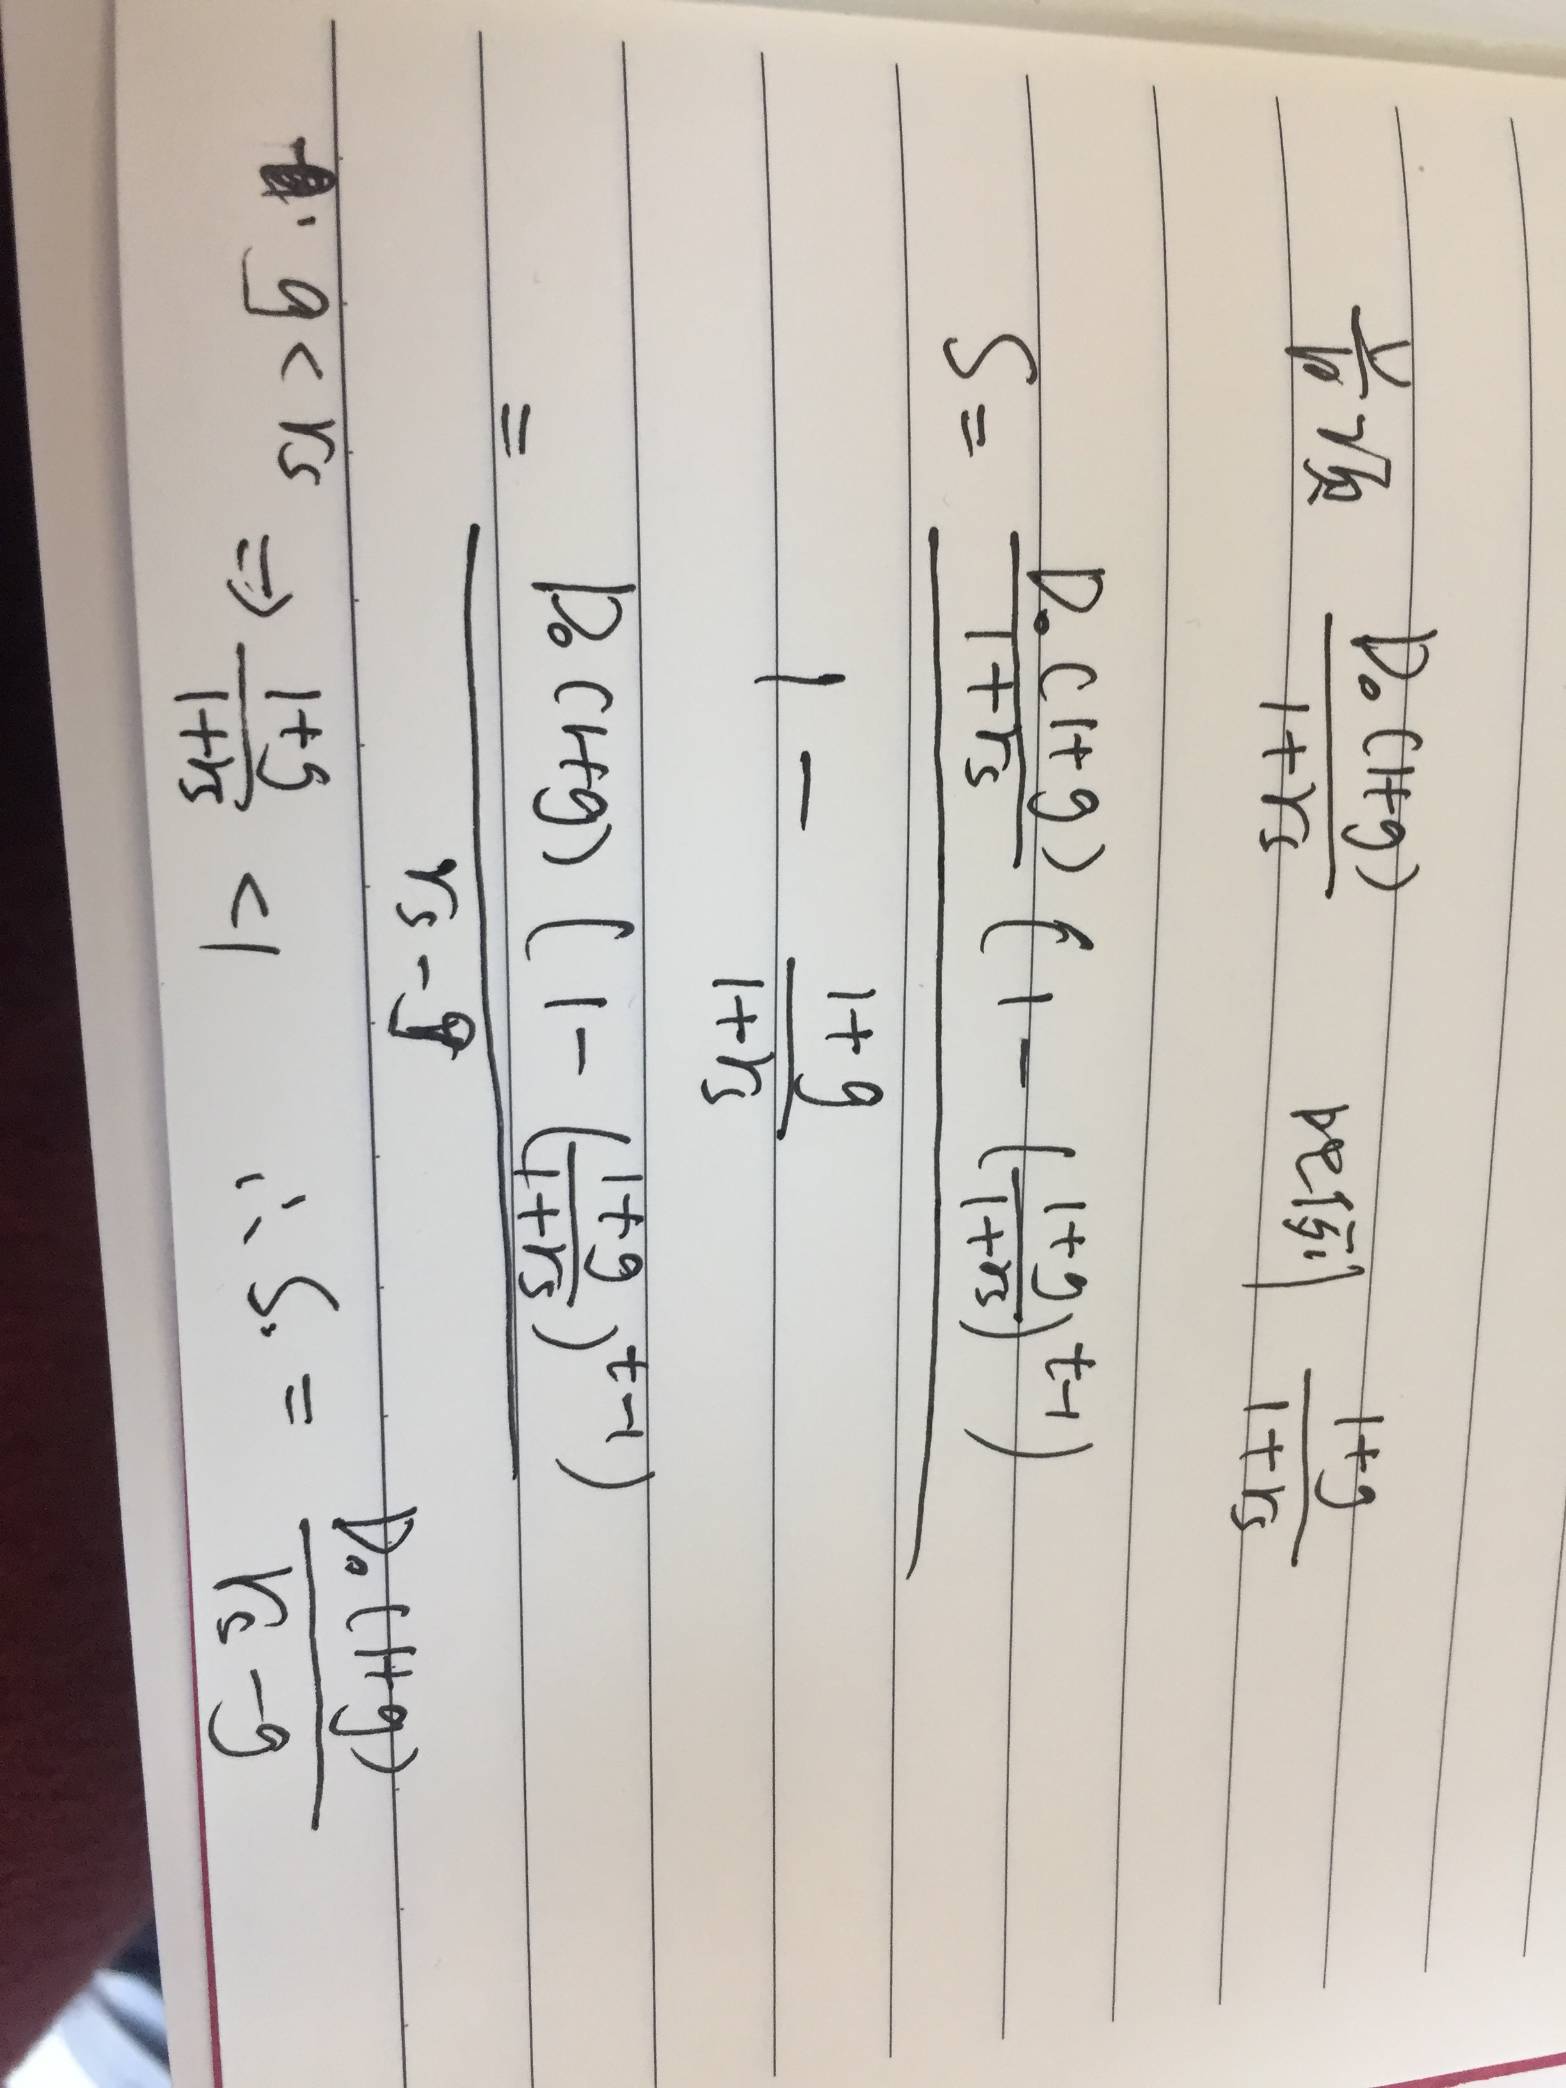 首项 D₀(1+g)/(1+rs) 比值 (1+g)/(1+rs)
S = [D₀(1+g)/(1+rs) (1 - ((1+g)/(1+rs))^(t-1))] / [1 - (1+g)/(1+rs)]
= D₀(1+g)(1 - ((1+g)/(1+rs))^(t-1)) / (rs - g)
∵ g < rs ⇒ (1+g)/(1+rs) < 1 ∴ S = D₀(1+g)/(rs - g)